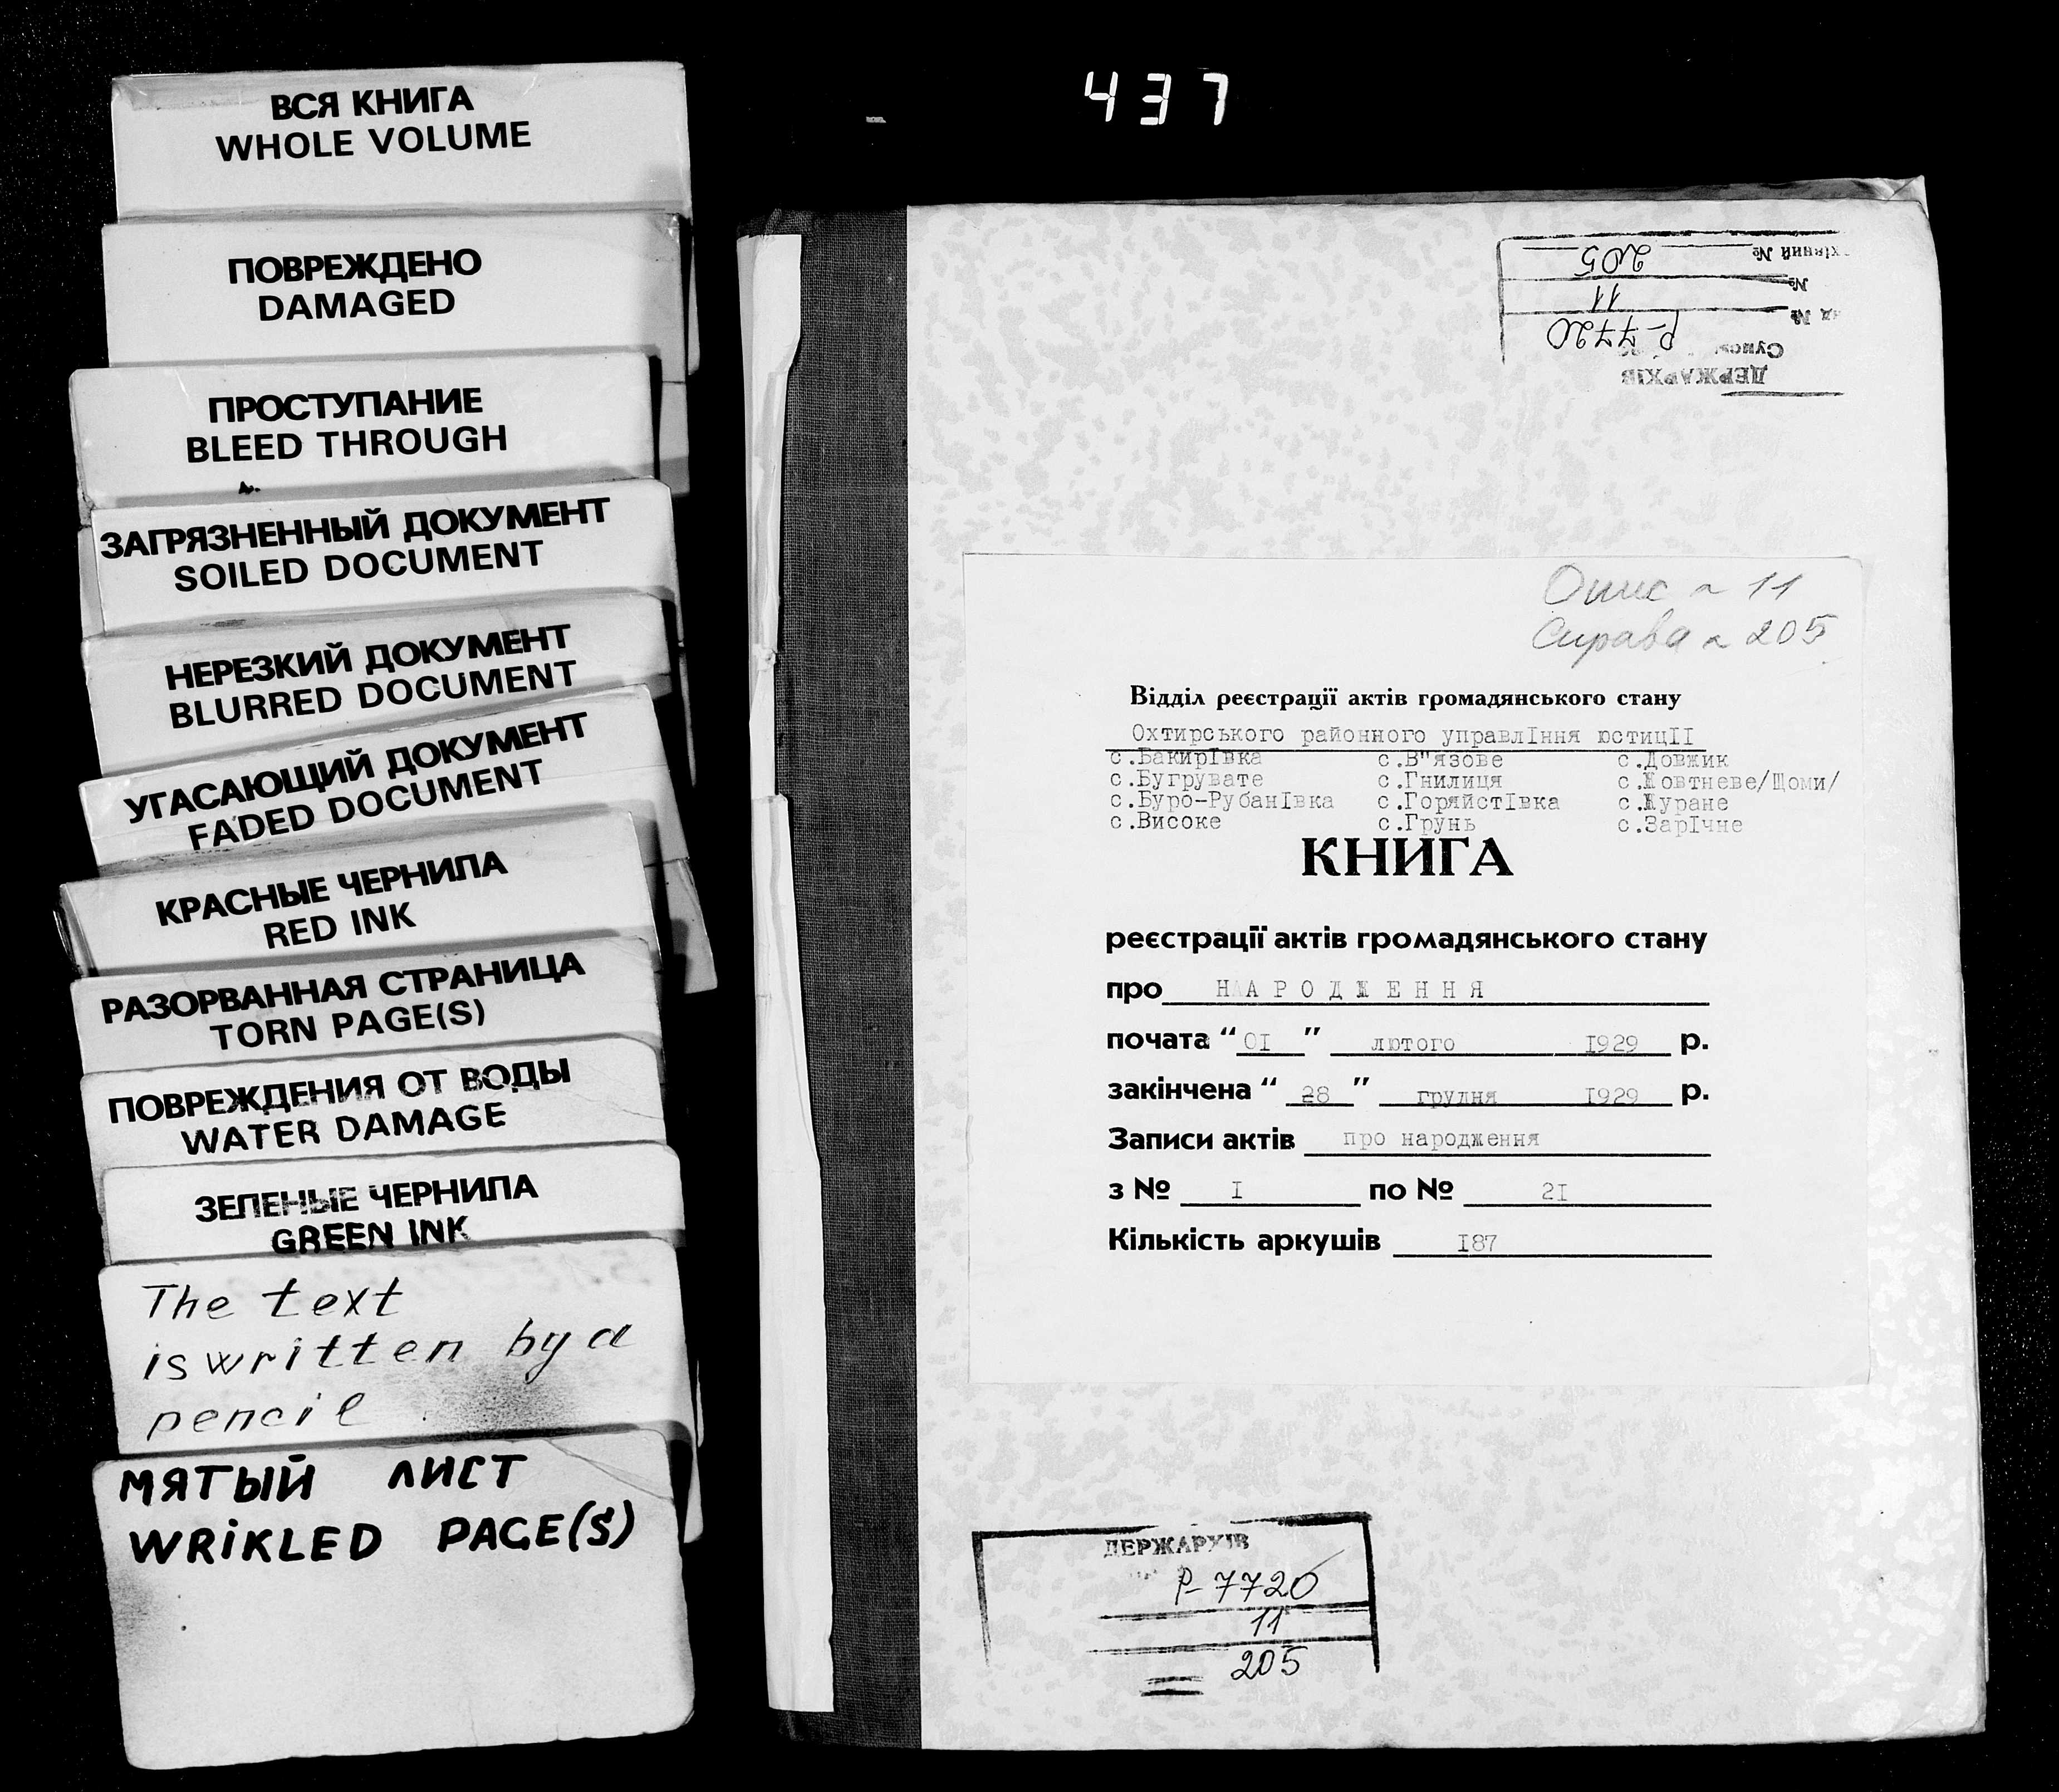 437
ВСЯ КНИГА
WHOLE VOLUME
ПОВРЕЖДЕНО
DAMAGED
ПРОСТУПАНИЕ
BLEED THROUGH
ЗАГРЯЗНЕННЫЙ ДОКУМЕНТ
SOILED DOCUMENT
НЕРЕЗКИЙ ДОКУМЕНТ
BLURRED DOCUMENT
УГАСАЮЩИЙ ДОКУМЕНТ
FADED DOCUMENT
КРАСНЫЕ ЧЕРНИЛА
RED INK
РАЗОРВАННАЯ СТРАНИЦА
TORN PAGE(S)
ПОВРЕЖДЕНИЯ ОТ ВОДЫ
WATER DAMAGE
ЗЕЛЕНЫЕ ЧЕРНИЛА
GREEN INK
The text
is written by a
pencil
МЯТЫЙ ЛИСТ
WRIKLED PAGE(S)
ДЕРЖАРХІВ
Р-7720
№ 11
№ 205
Опис № 11
Справа № 205
Відділ реєстрації актів громадянського стану
Охтирського районного управлІння юстицІІ
с.БакирІвка с.В"язове с.Довжик
с.Бугрувате с.Гнилиця с.Жовтневе/Щоми/
с.Буро-РубанІвка с.ГоряйстІвка с.Журане
с.Високе с.Грунь с.ЗарІчне
КНИГА
реєстрації актів громадянського стану
про НАРОДЖЕННЯ
почата “ 0І ” лютого І929 р.
закінчена “ 28 ” грудня І929 р.
Записи актів про народження
з № І по № 2І
Кількість аркушів І87
ДЕРЖАРХІВ
Р-7720
11
205